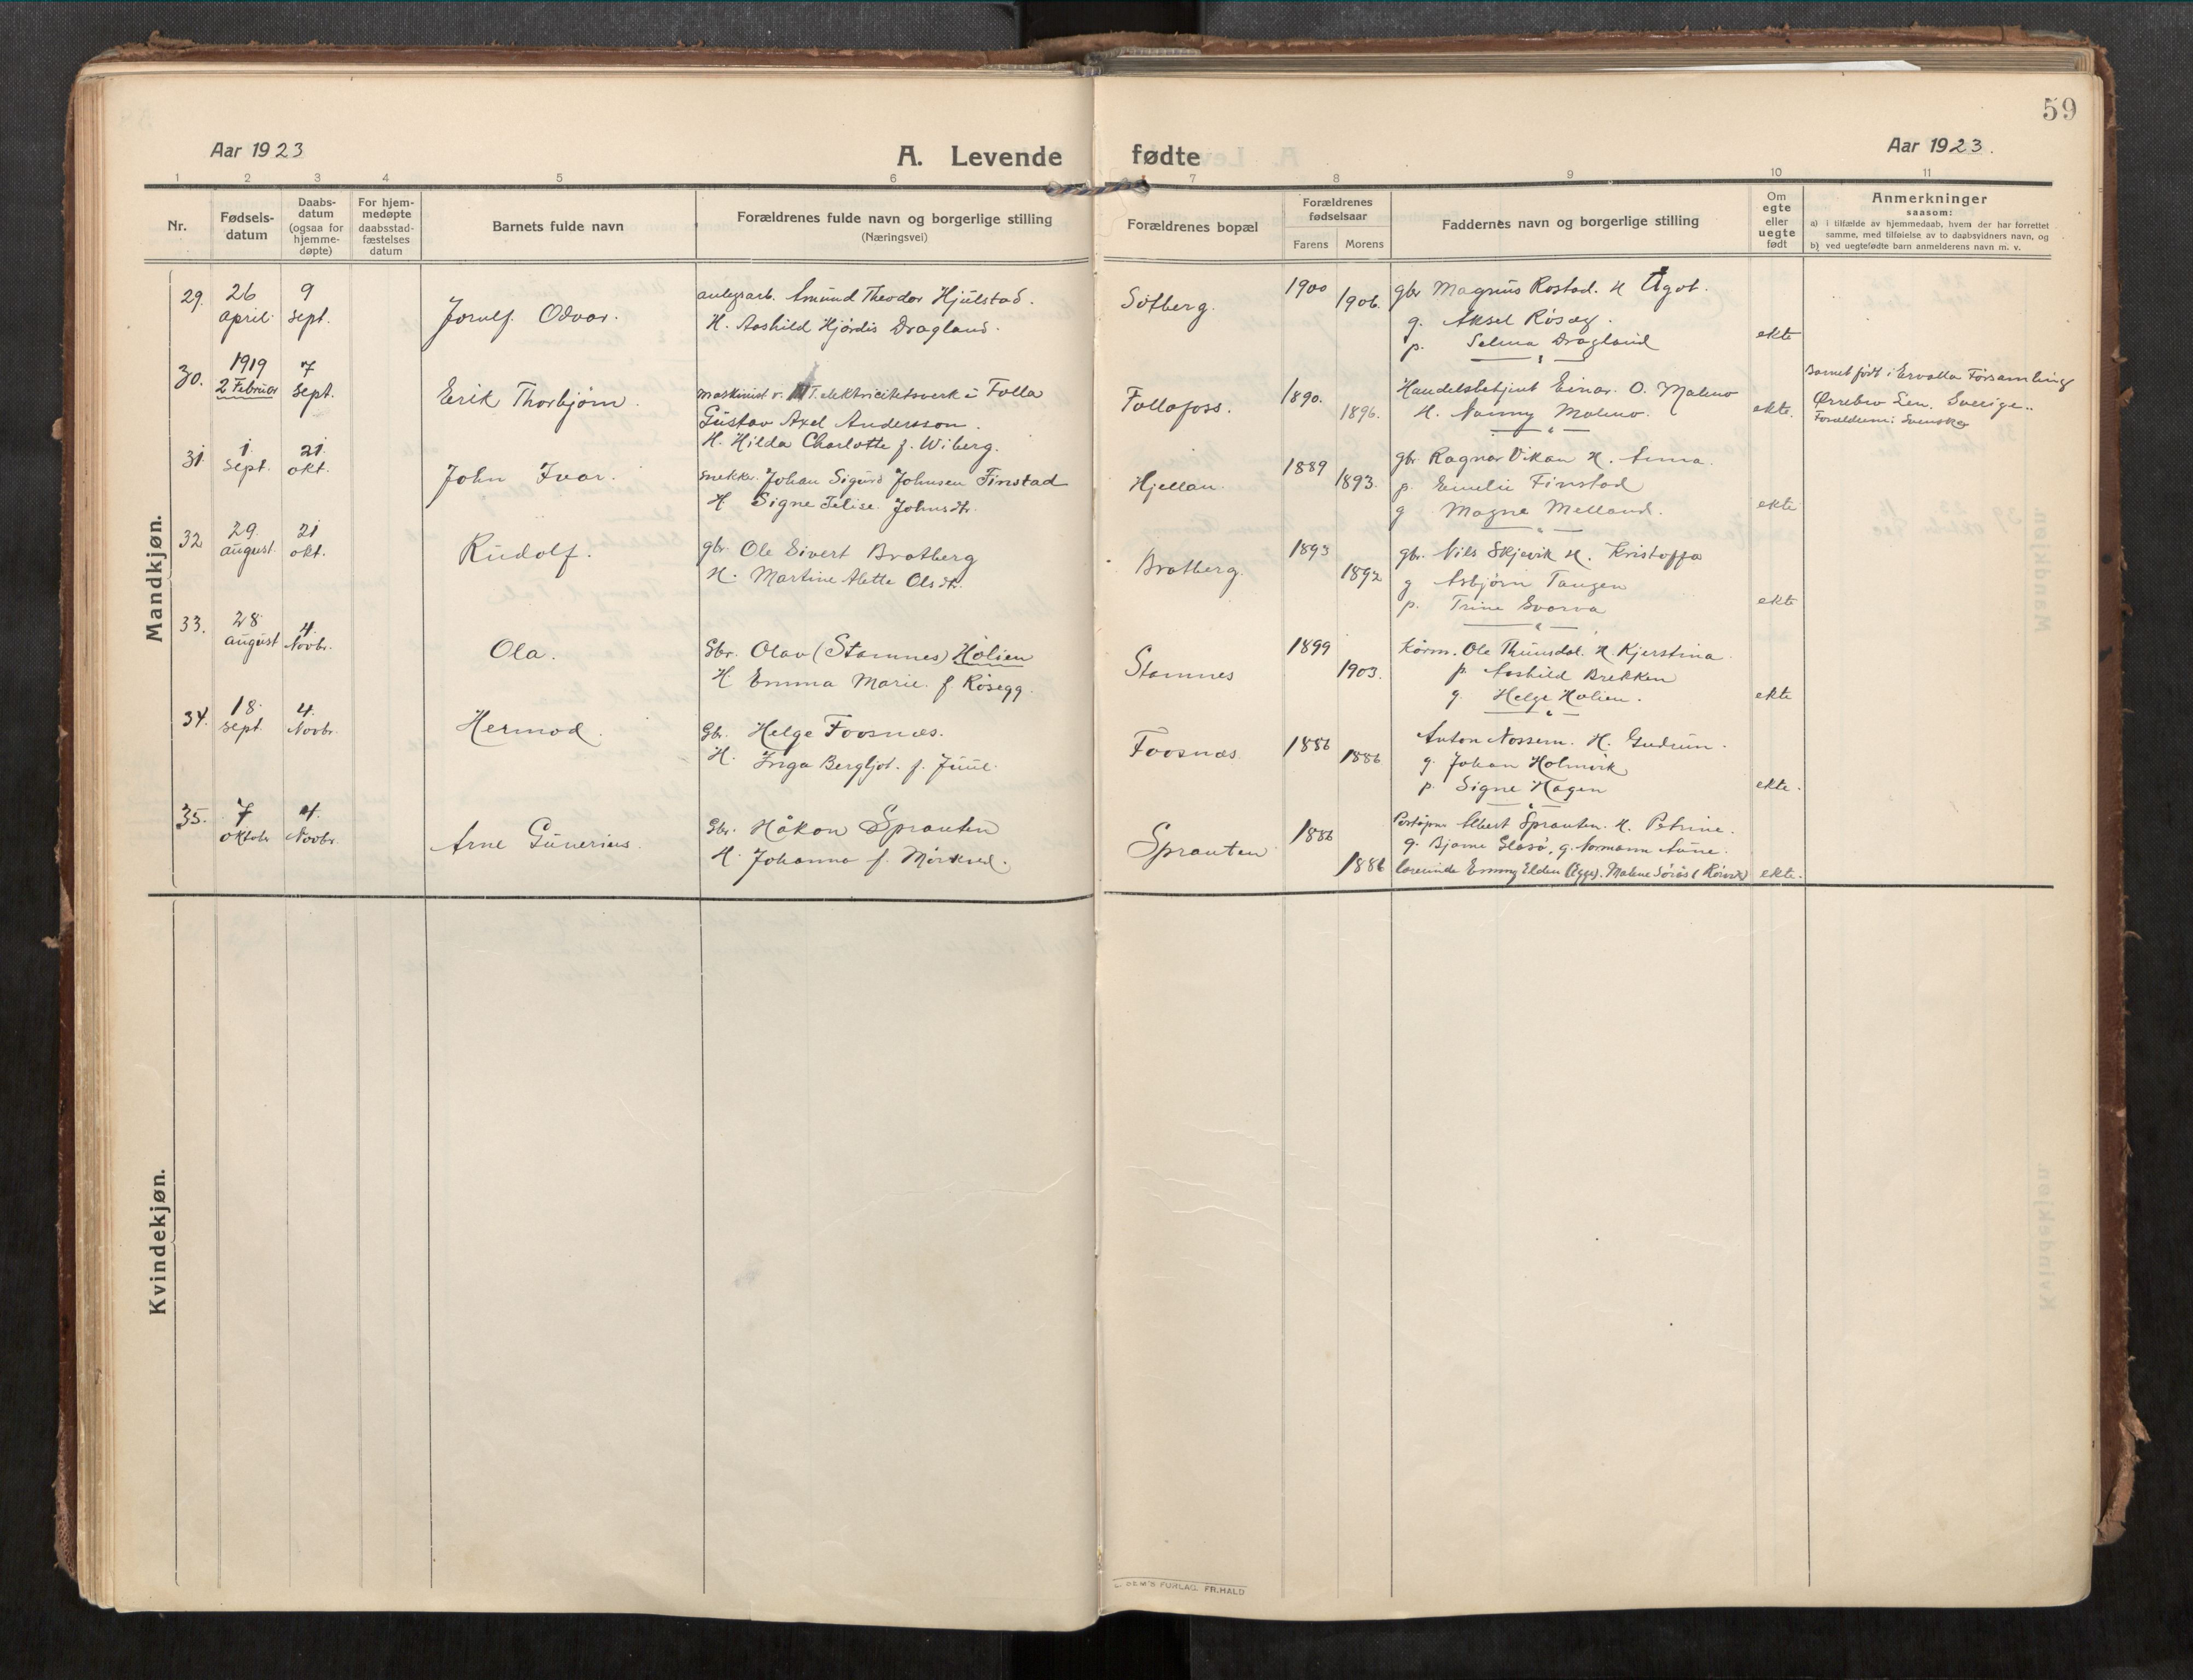 59
Aar 1923
A. Levende fødte
Aar 1923.
1 2 3 4 5 6 7 8 9 10 11
Nr.
Fødsels-
datum
Daabs-
datum
(ogsaa for
hjemme-
døpte)
For hjem-
medøpte
daabsstad-
fæstelses
datum
Barnets fulde navn
Forældrenes fulde navn og borgerlige stilling
(Næringsvei)
Forældrenes bopæl
Forældrenes
fødselsaar
Farens Morens
Faddernes navn og borgerlige stilling
Om
egte
eller
uegte
født
Anmerkninger
saasom:
a) i tilfælde av hjemmedaab, hvem der har forrettet
samme, med tilføielse av to daabsvidners navn, og
b) ved uegtefødte barn anmelderens navn m. v.
Mandkjøn.
29. 26 april. 9 sept.
Jorulf Odvar.
anlegsarb. Amund Theodor Hjulstad.
H. Aashild Hjördis Dragland.
Sötberg.
1900 1906.
gbr Magnus Rostad. H Ågot.
g. Aksel Røseg.
p. Selma Dragland
ekte
30. 1919 2 Februar 7 sept.
Erik Thorbjørn.
maskinist v. N.T. elektricitetsverk i Folla
Gustav Axel Andersson.
H. Hilda Charlotte f. Wiberg.
Follafoss.
1890. 1896.
Handelsbetjent Einar. O. Malmo
H. Nanny Malmo.
ekte.
Barnet født i Ervalla Församling
Ørrebro Len. Sverige..
Forældrene Svenske
31. 1. sept. 21. okt.
John Ivar.
snekker. Johan Sigurd Johnsen Finstad
H Signe Telise Johnsdtr.
Hjellan.
1889 1893.
gbr Ragnar Vikan H. Anna.
p. Emelie Finstad
g. Magne Melland.
ekte
32 29. august. 21 okt.
Rudolf.
gbr. Ole Sivert Bratberg
H. Martine Alette Olsdtr.
Bratberg.
1893 1892
gbr. Nils Skjevik H. Kristoffa
g Asbjørn Tangen
p. Trine Svarva
ekte
33. 28 august 4. Novbr.
Ola.
Gbr. Olav (Stamnes) Holien
H Emma Marie. f. Røsegg.
Stamnes
1899 1903.
Ole Thunsdal. H. Kjerstina.
p. Aashild Brekken
g. Helge Holien.
ekte
34. 18. sept. 4. Novbr.
Hermod.
Gbr. Helge Foosnæs.
H. Friga Bergljot. f. Juul.
Foosnæs
1886 1886
Anton Nossum. H. Gudrun.
g. Johan Holmvik
p. Signe Hagen
ekte.
35. 7 oktobr 4. Novbr.
Arne Gunerius.
Gbr. Håkon Sprauten
H. Johanna f. Mörkved.
Sprauten
1886 1886
Poståpner Albert Sprauten. H. Petrine.
g. Bjarne Gløsø, g. Normann Aune.
lærerinde Emmy Elden (Egge). Malene Sörås (Rörvik)
ekte.
Kvindekjøn.
FORLAG. FR.HALD